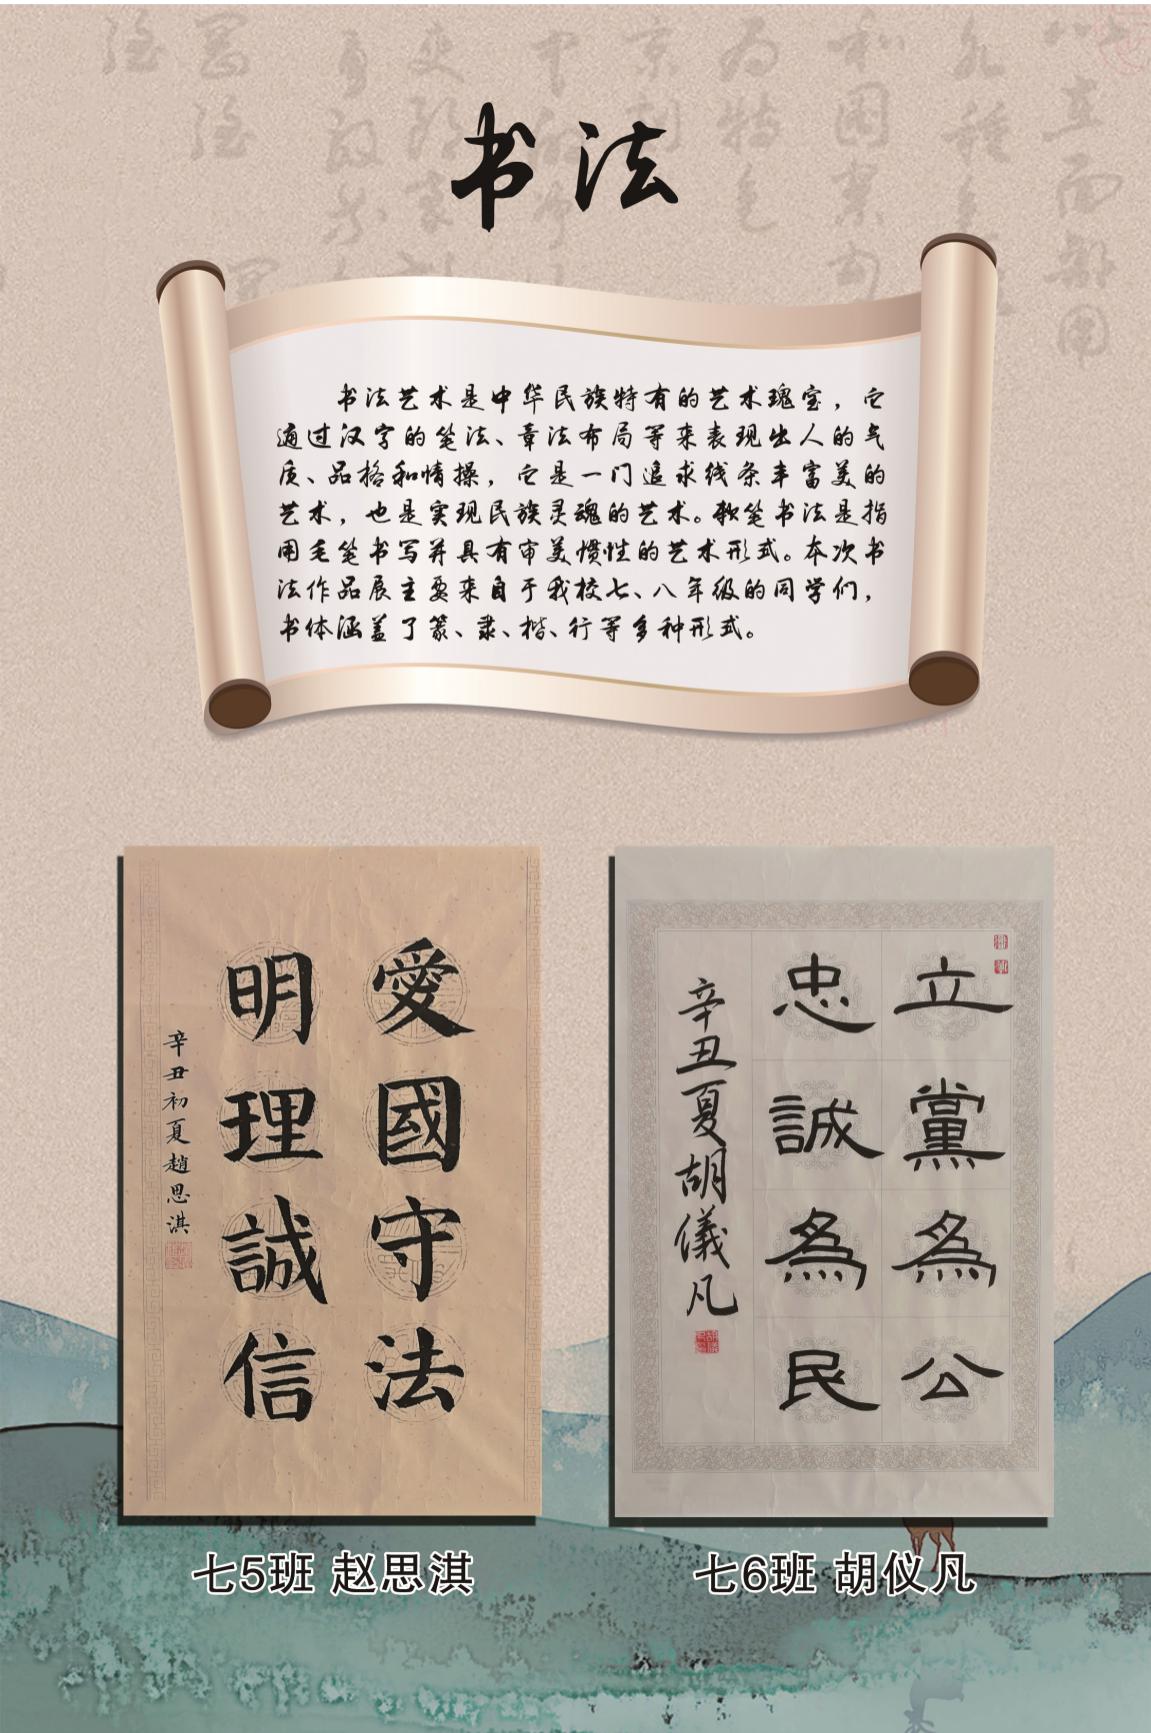 书法
书法艺术是中华民族特有的艺术瑰宝，它
通过汉字的笔法、章法布局等来表现出人的气
质、品格和情操，它是一门追求线条丰富美的
艺术，也是实现民族灵魂的艺术。软笔书法是指
用毛笔书写并具有审美惯性的艺术形式。本次书
法作品展主要来自于我校七、八年级的同学们，
书体涵盖了篆、隶、楷、行等多种形式。
愛國守法
明理誠信
辛丑初夏趙思淇
立黨為公
忠誠為民
辛丑夏胡儀凡
七5班 赵思淇
七6班 胡仪凡